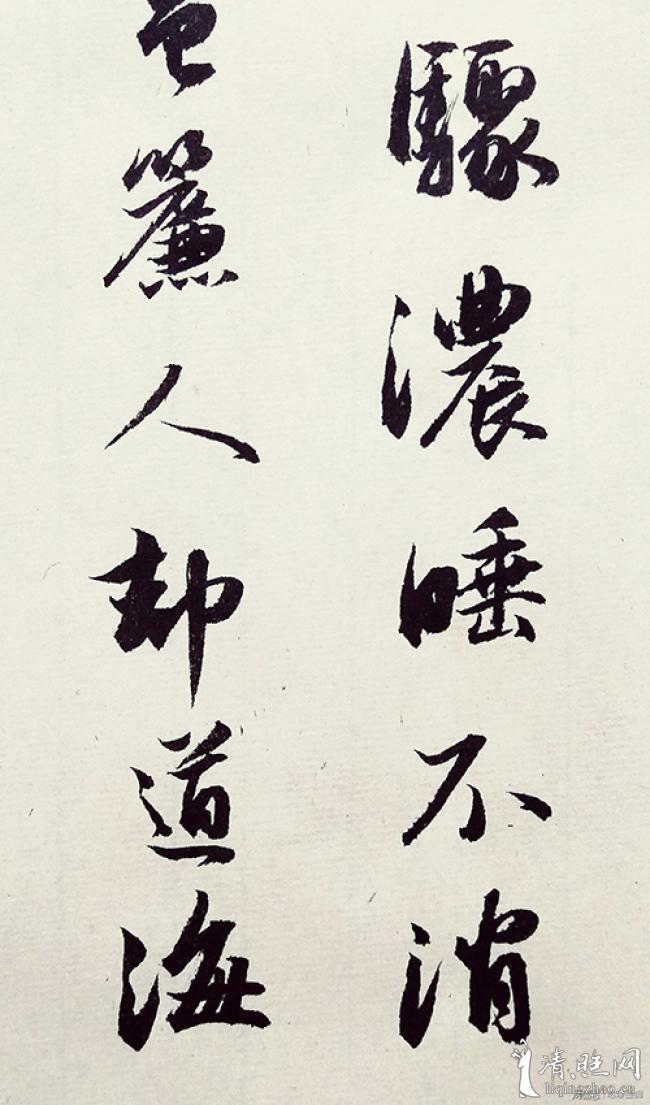 驟濃睡不消
簾人却道海
liqingzhao.cn